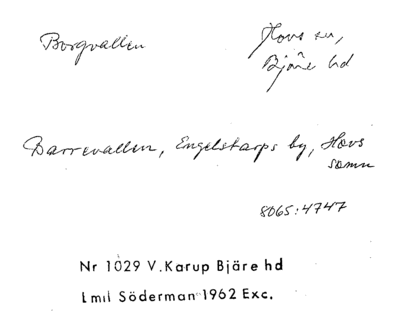 Borgvallen
Hovs sn,
Bjäre hd
Darrevallen, Engelstarps by, Hovs
somn
8065:4747
Nr 1029 V.Karup Bjäre hd
Emil Söderman 1962 Exc.